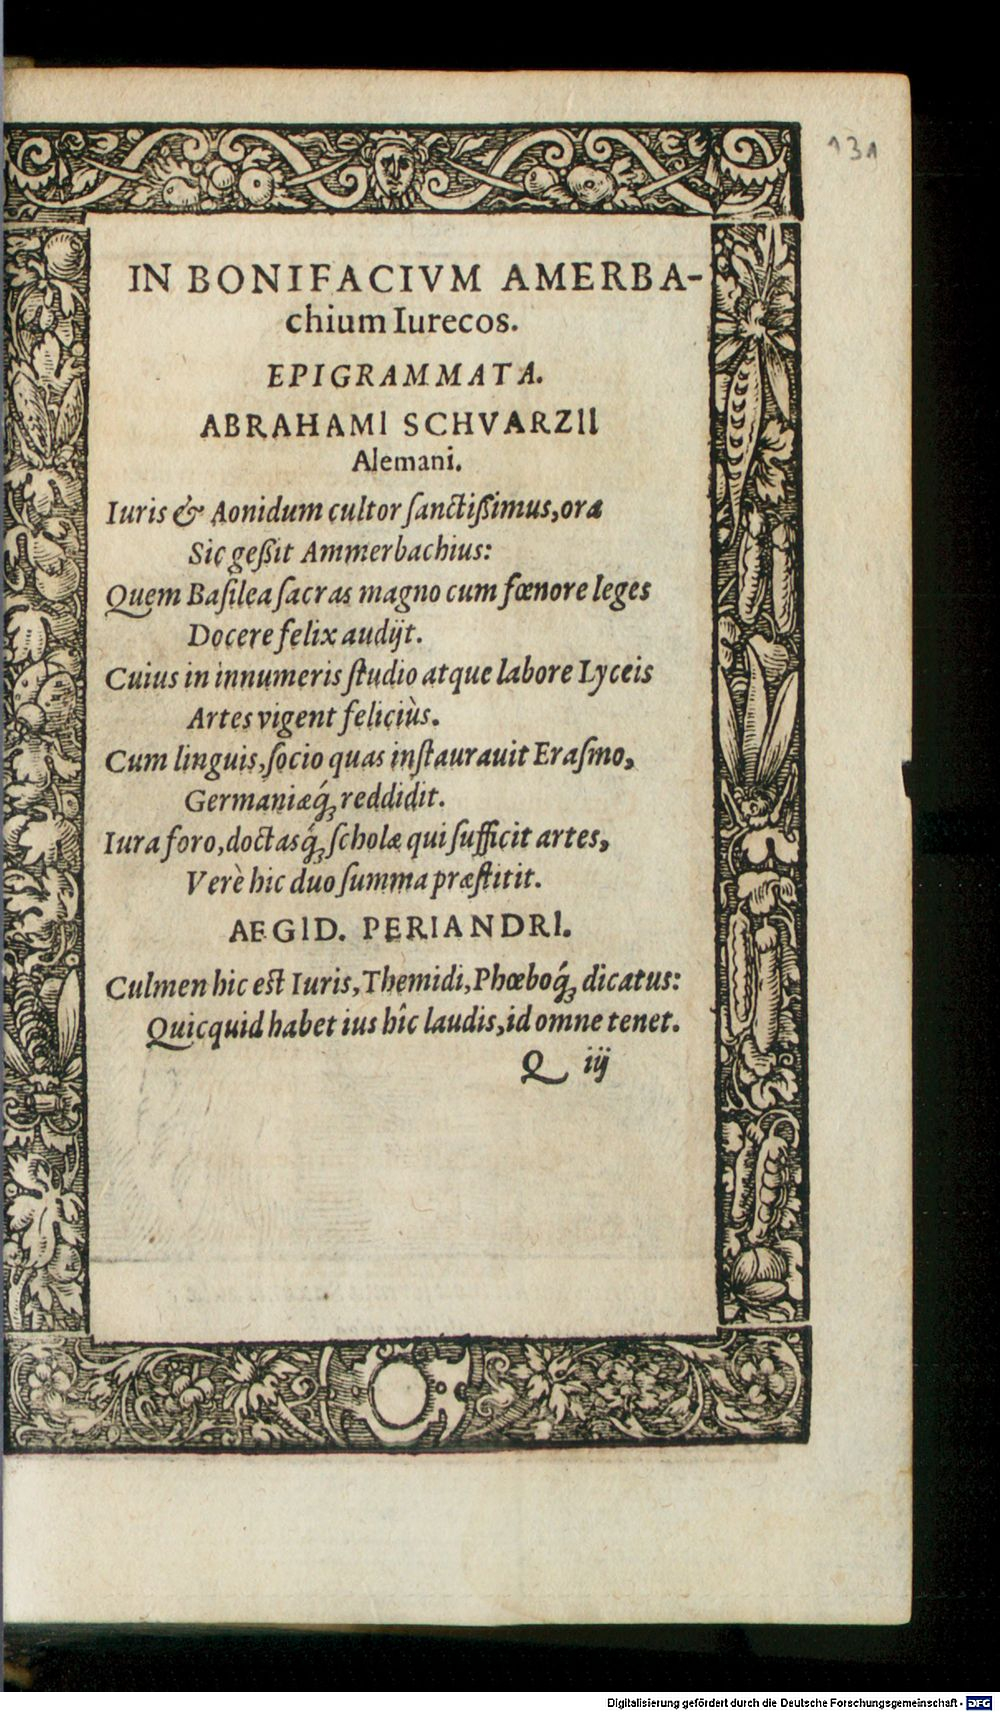 131
IN BONIFACIVM AMERBA-
chium Iurecos.
EPIGRAMMATA.
ABRAHAMI SCHVARZII
Alemani.
Iuris & Aonidum cultor ſanctißimus, ora
Sic geßit Ammerbachius:
Quem Baſilea ſacras magno cum fœnore leges
Docere felix audijt.
Cuius in innumeris ſtudio atque labore Lyceis
Artes vigent feliciùs.
Cum linguis, ſocio quas inſtaurauit Eraſmo,
Germaniæq́ꝫ reddidit.
Iura foro, doctasq́ꝫ ſcholæ qui ſufficit artes,
Verè hic duo ſumma præſtitit.
AEGID. PERIANDRI.
Culmen hic est Iuris, Themidi, Phœboq́ꝫ dicatus:
Quicquid habet ius hîc laudis, id omne tenet.
Q iij
Digitalisierung gefördert durch die Deutsche Forschungsgemeinschaft - DFG